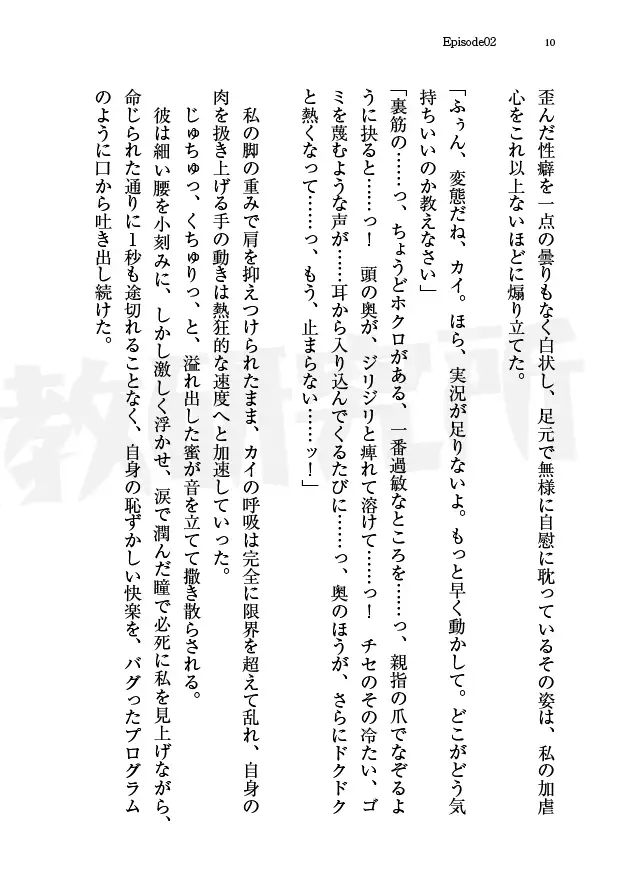 Episode02
10
歪んだ性癖を一点の曇りもなく白状し、足元で無様に自慰に耽っているその姿は、私の加虐
心をこれ以上ないほどに煽り立てた。
「ふぅん、変態だね、カイ。ほら、実況が足りないよ。もっと早く動かして。どこがどう気
持ちいいのか教えなさい」
「裏筋の……っ、ちょうどホクロがある、一番過敏なところを……っ、親指の爪でなぞるよ
うに抉ると……っ！　頭の奥が、ジリジリと痺れて溶けて……っ！　チセのその冷たい、ゴ
ミを蔑むような声が……耳から入り込んでくるたびに……っ、奥のほうが、さらにドクドク
と熱くなって……っ、もう、止まらない……ッ！」
私の脚の重みで肩を抑えつけられたまま、カイの呼吸は完全に限界を超えて乱れ、自身の
肉を扱き上げる手の動きは熱狂的な速度へと加速していった。
じゅちゅっ、くちゅりっ、と、溢れ出した蜜が音を立てて撒き散らされる。
彼は細い腰を小刻みに、しかし激しく浮かせ、涙で潤んだ瞳で必死に私を見上げながら、
命じられた通りに１秒も途切れることなく、自身の恥ずかしい快楽を、バグったプログラム
のように口から吐き出し続けた。
教研究所